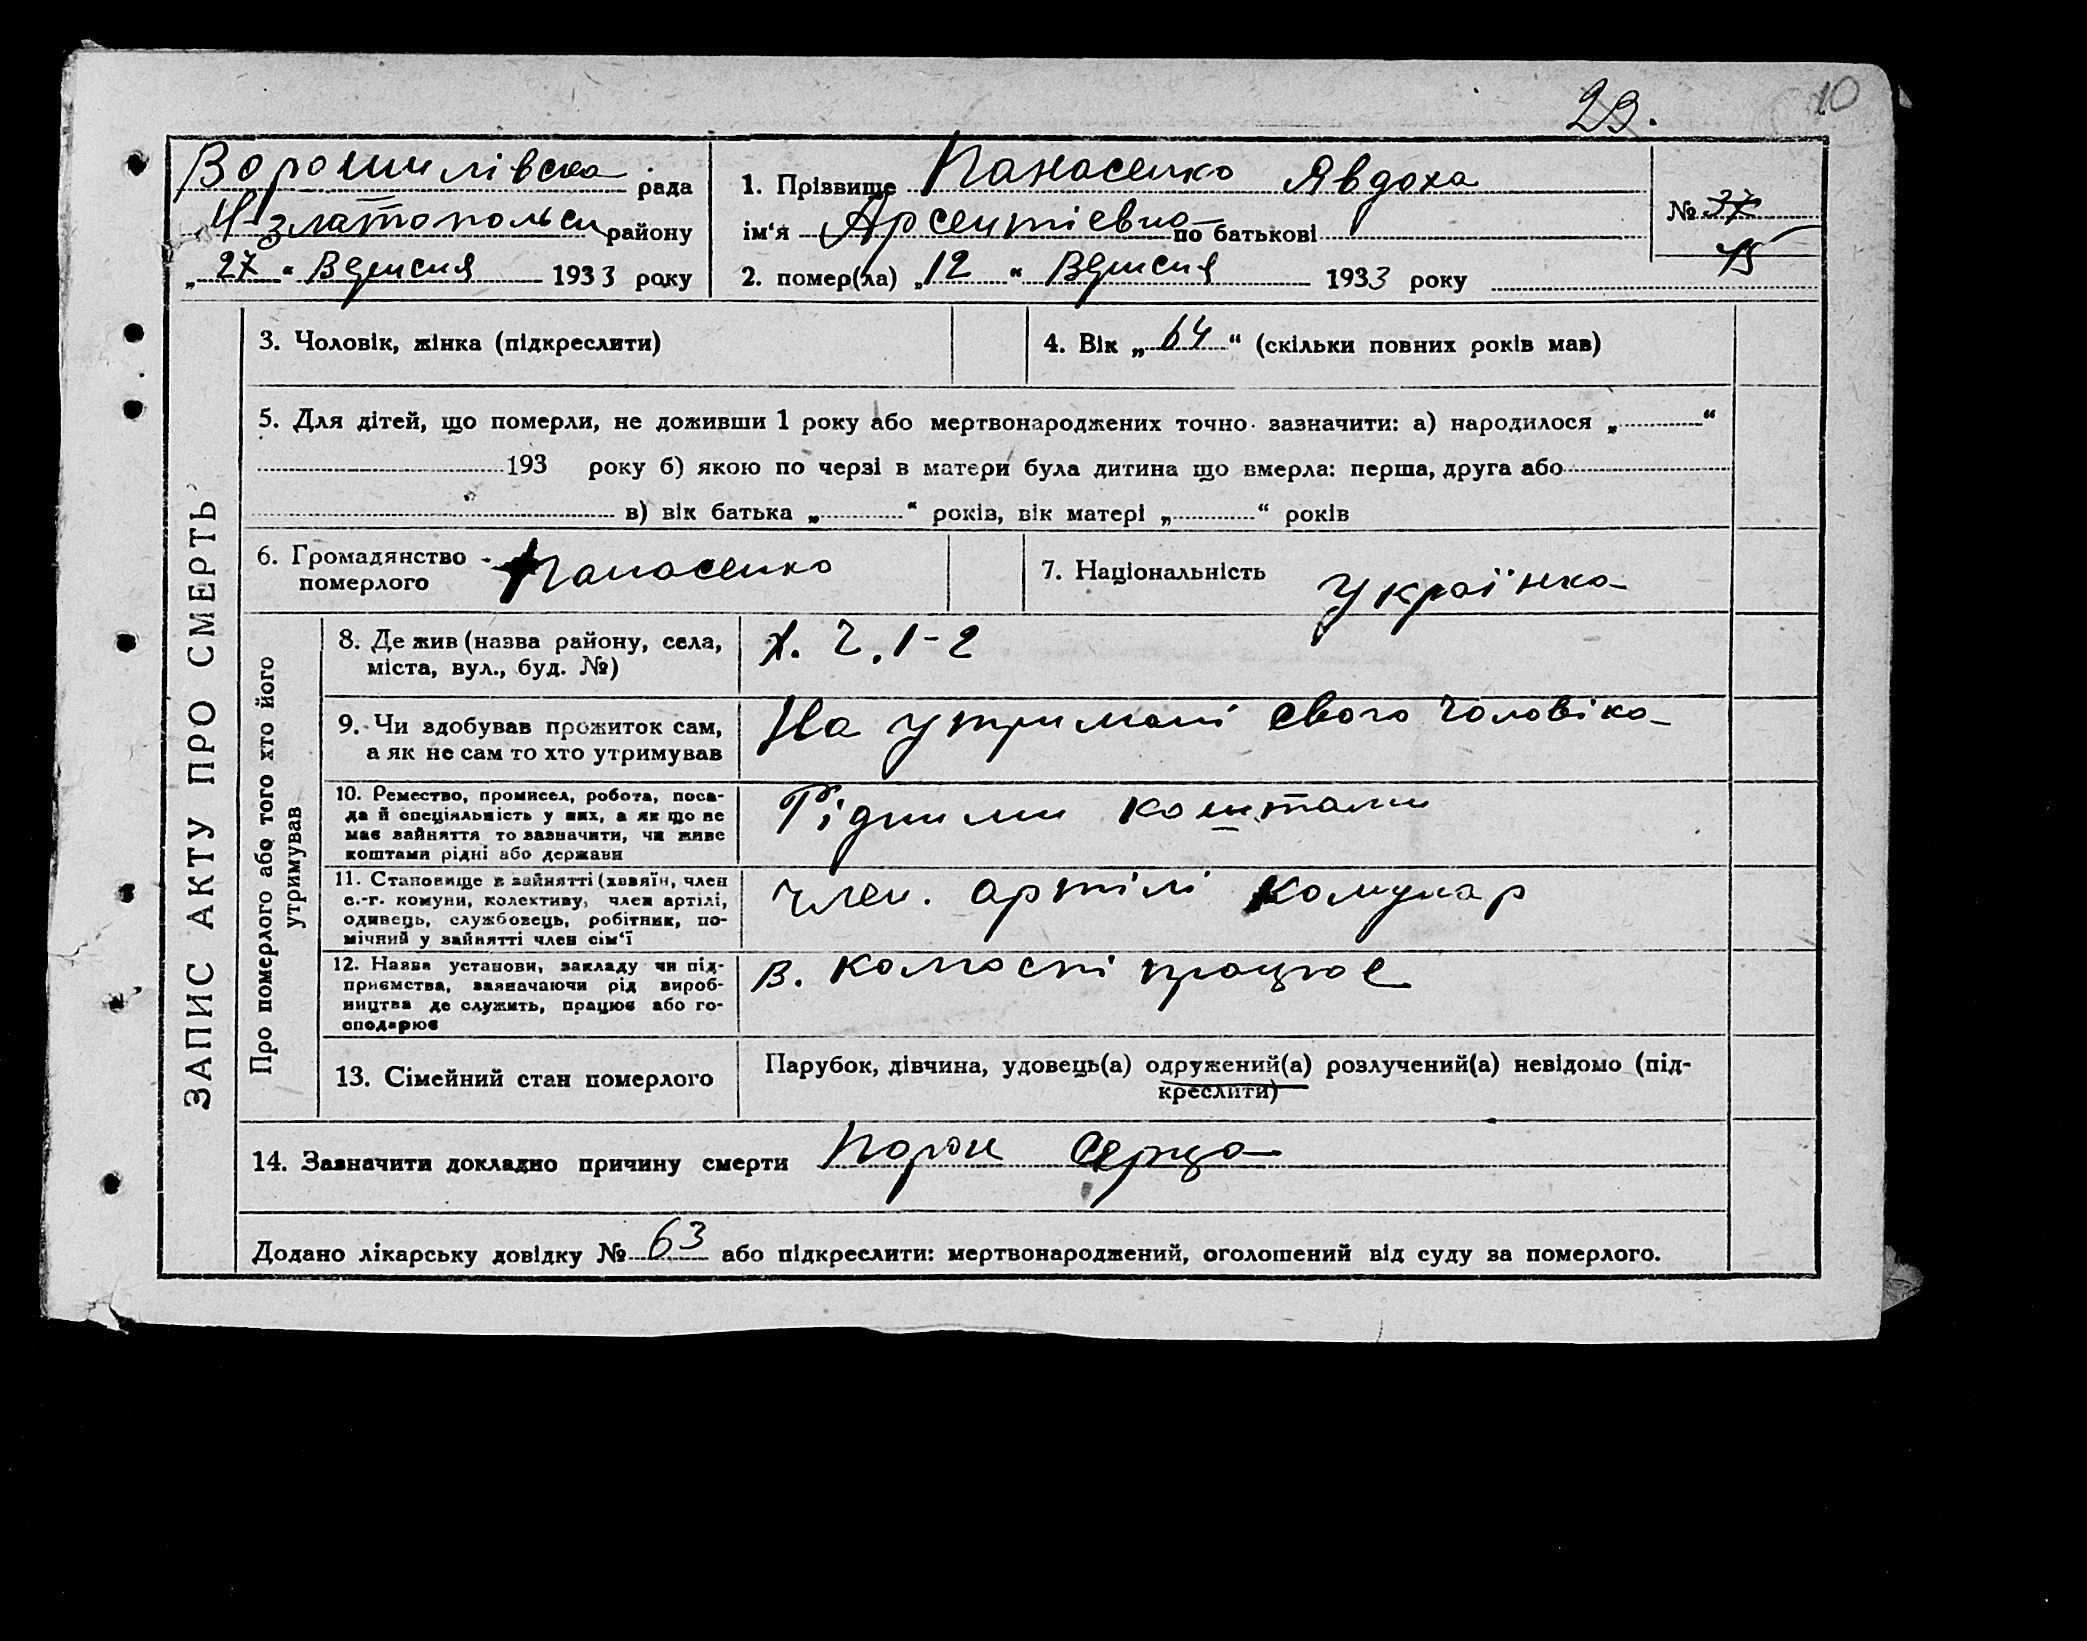 23.
10
Ворошилівска рада
Н-златопольск району
„27“ Вдресня 1933 року
1. Прізвище Панасенко Явдоха
ім'я Арсентіевна по батькові
2. помер(ла) „12“ Вдресня 1933 року
№ 37
15
ЗАПИС АКТУ ПРО СМЕРТЬ
3. Чоловік, жінка (підкреслити)
4. Вік „64“ (скільки повних років мав)
5. Для дітей, що померли, не доживши 1 року або мертвонароджених точно зазначити: а) народилося „ “
193 року б) якою по черзі в матери була дитина що вмерла: перша, друга або
в) вік батька „ “ років, вік матері „ “ років
6. Громадянство
померлого
Панасенко
7. Національність Українка
Про померлого або того хто його
утримував
8. Де жив (назва району, села,
міста, вул., буд. №)
Х. Ч. 1-2
9. Чи здобував прожиток сам,
а як не сам то хто утримував
На утримані свого Чоловіка
10. Ремество, промисел, робота, поса-
да й спеціяльність у них, а як що не
має зайняття то зазначити, чи живе
коштами рідні або держави
Рідними коштами
11. Становище в зайнятті (хазяїн, член
с.-г. комуни, колективу, член артілі,
одинець, службовець, робітник, по-
мічний у зайнятті член сім'ї
член. артілі комунар
12. Назва установи, закладу чи під-
приємства, зазначаючи рід вироб-
ництва де служить, працює або го-
сподарює
в. колгоспі працює
13. Сімейний стан померлого
Парубок, дівчина, удовець(а) одружений(а) розлучений(а) невідомо (під-
креслити)
14. Зазначити докладно причину смерти Порок серца
Додано лікарську довідку № 63 або підкреслити: мертвонароджений, оголошений від суду за померлого.